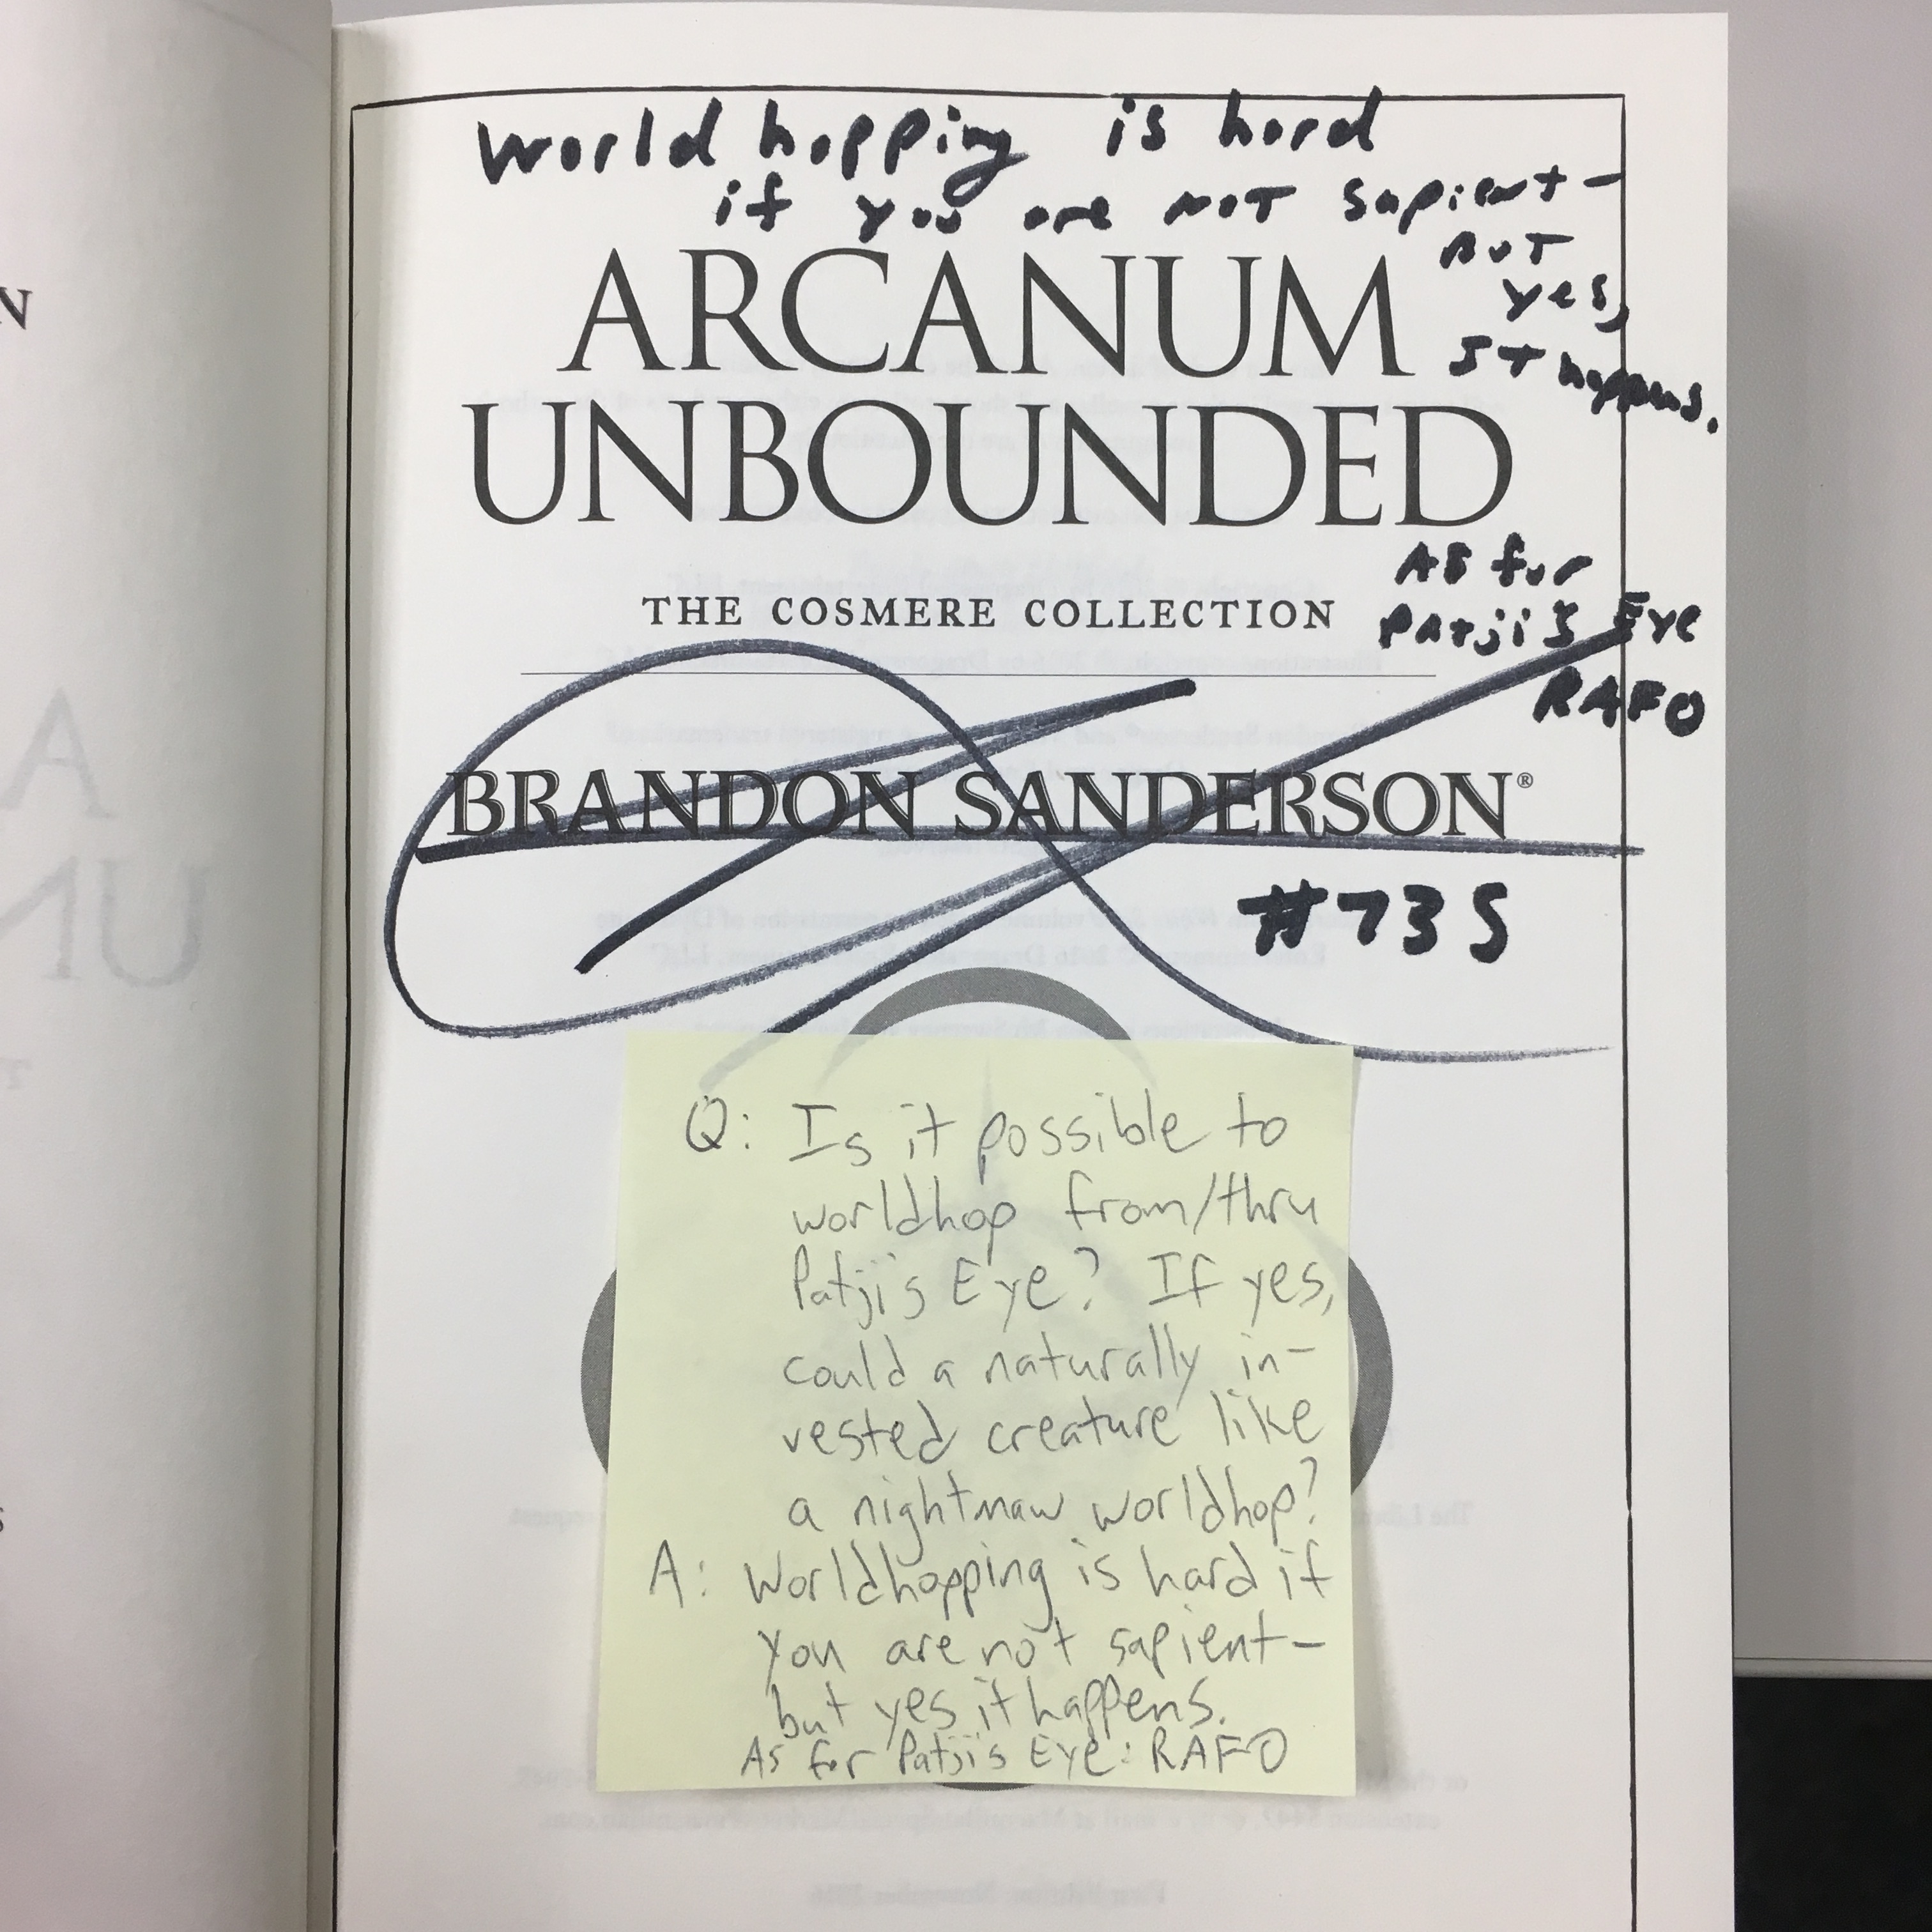 World hopping is hard
if you are NOT sapient—
BUT
yes,
IT happens.
ARCANUM
UNBOUNDED
THE COSMERE COLLECTION
AS for
Patji's Eye
RAFO
BRANDON SANDERSON®
#735
Q: Is it possible to
worldhop from/thru
Patji's Eye? If yes,
could a naturally in-
vested creature like
a nightmaw worldhop?
A: Worldhopping is hard if
you are not sapient—
but yes it happens.
As for Patji's Eye: RAFO